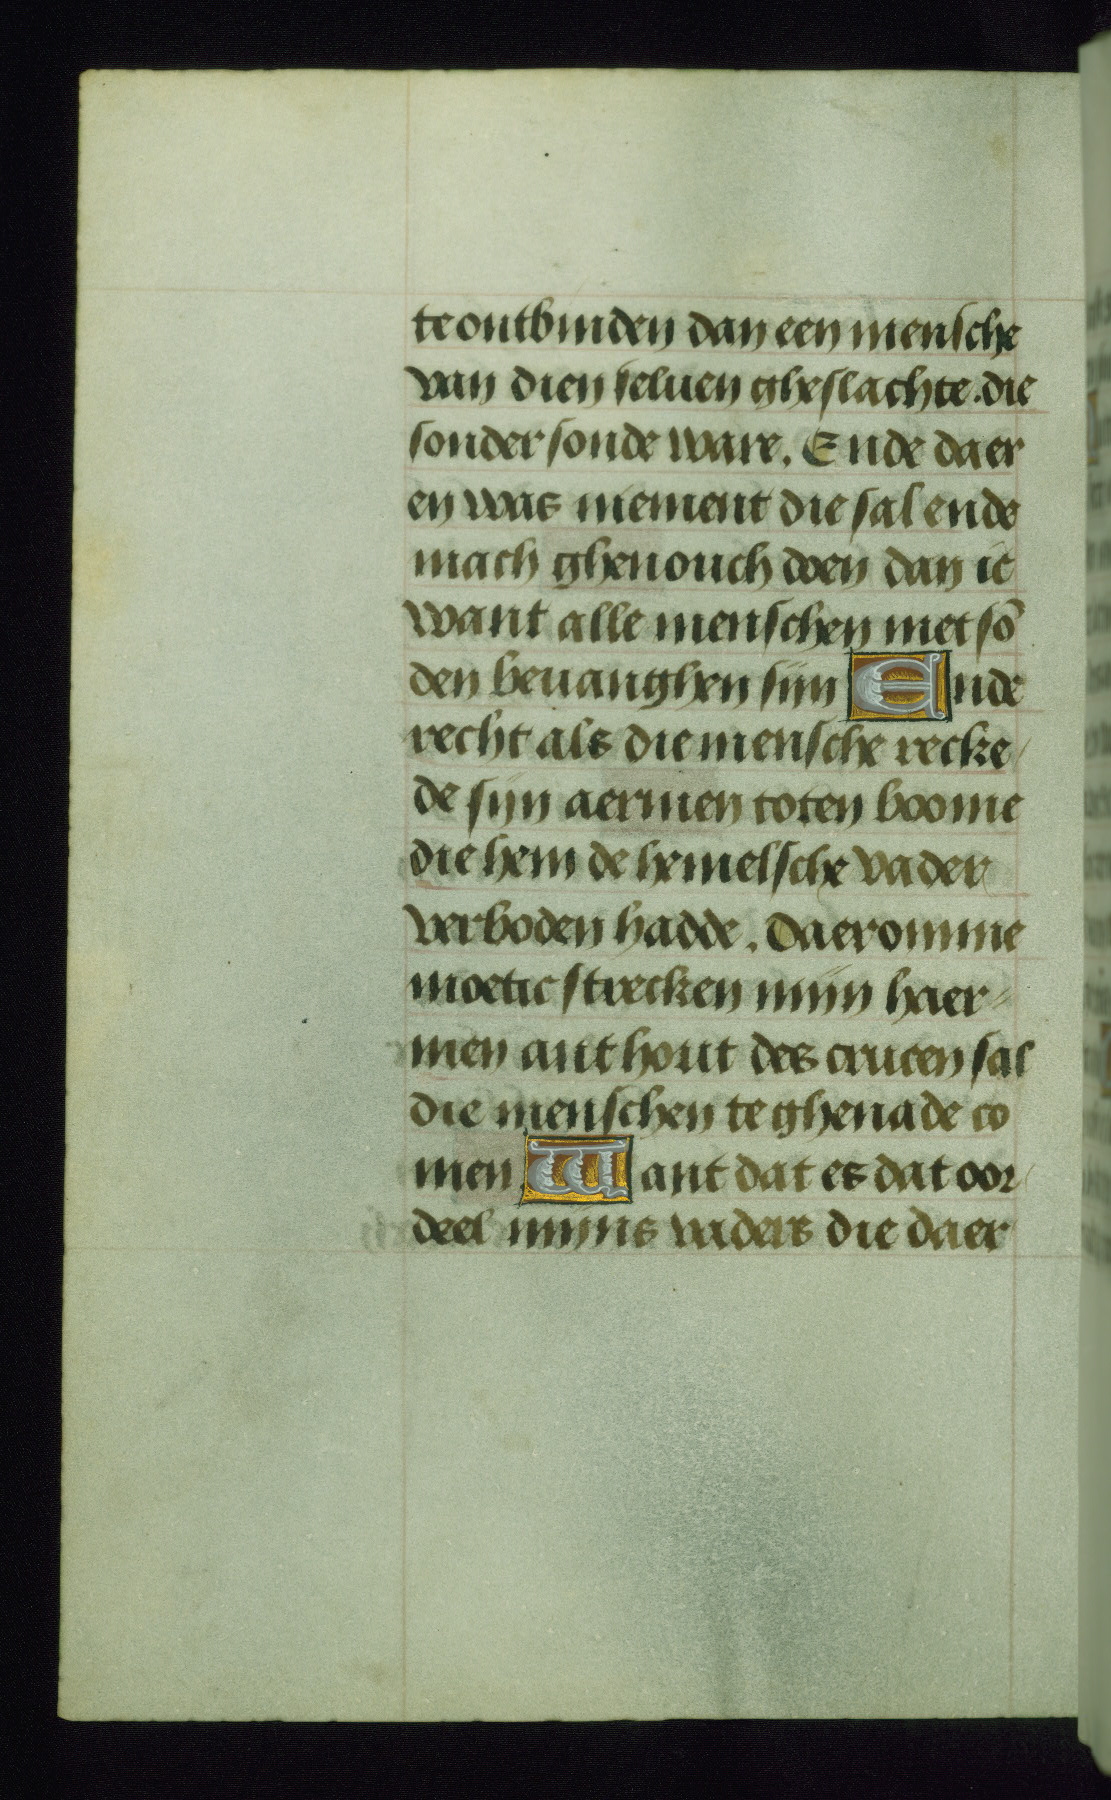 te ontbinden dan een mensche
van dien seluen gheslachte. die
sonder sonde ware. Ende daer
en was niement die sal ende
mach ghenouch doen dan ic
want alle menschen met sō
den beuanghen sijn Ende
recht als die mensche recke/
de sijn aermen toten boome
die hem de hemelsche vader
verboden hadde. Daeromme
moetic strecken mijn haer-
men ant hout des crucen sal
die menschen te ghenade co
men Want dat es dat oor/
deel mijns vaders die daer